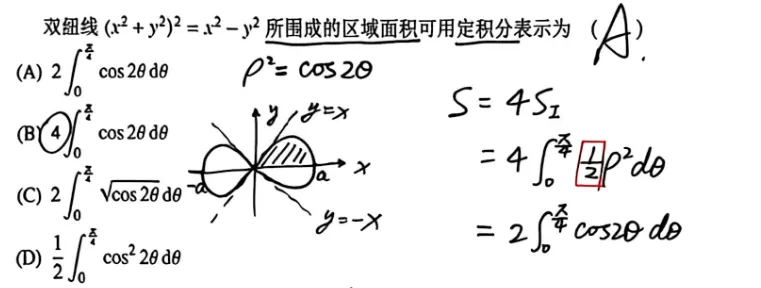 双纽线 (x² + y²)² = x² − y² 所围成的区域面积可用定积分表示为 (A.)
(A) 2∫₀^{π/4} cos 2θ dθ
ρ² = cos2θ
(B) 4∫₀^{π/4} cos 2θ dθ
(C) 2∫₀^{π/4} √(cos 2θ) dθ
(D) 1/2 ∫₀^{π/4} cos² 2θ dθ
y
y=x
x
-a
a
y=-x
S = 4S_I
= 4∫₀^{π/4} 1/2 ρ² dθ
= 2∫₀^{π/4} cos2θ dθ